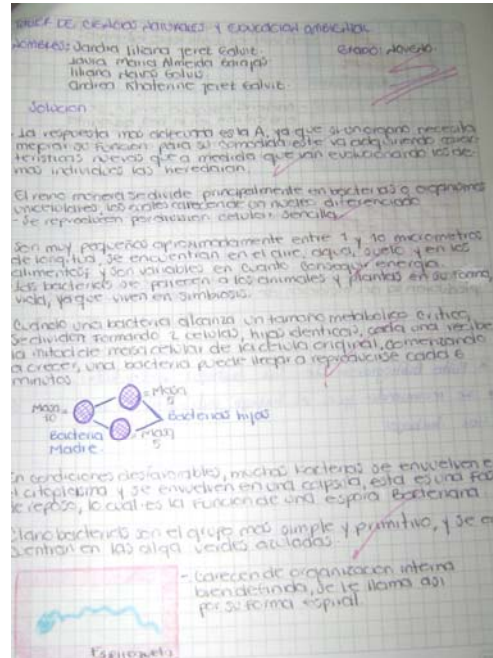 TALLER DE CIENCIAS NATURALES Y EDUCACION AMBIENTAL
Nombres: Jandra liliana jeret Galvit. Grado: Noveno
Maria Almeida
liliana
Andrea Khaterine jeret Galvit.
Solucion
- La respuesta mas adecuada es la A, ya que si un organo necesita
mejorar su funcion para su comodidad este va adquiriendo carac-
teristicas nuevas que a medida que van evolucionando los de-
mas individuos las heredarian.
El reino monera se divide principalmente en bacterias o organismos
unicelulares, los cuales carecen de un nucleo diferenciado
- Se reproducen por division celular sencilla
Son muy pequeños aproximadamente entre 1 y 10 micrometros
de longitud, se encuentran en el aire, agua, suelo y en los
alimentos; y son variables en cuanto conseguir energia.
las bacterias se parecen a los animales y plantas en su forma,
vida, ya que viven en simbiosis.
Cuando una bacteria alcanza un tamaño metabolico critico,
se dividen formando 2 celulas, hijas identicas, cada una recibe
la mitad de masa celular de la celula original, comenzando
a crecer, una bacteria puede llegar a reproducirse cada 6
minutos
= Masa
5
Masa =
10
Bacterias hijas
Bacteria
Madre
= Masa
5
En condiciones desfavorables, muchas bacterias se envuelven e
citoplasma y se envuelven en una capsula, esta es una fas
e reposo, lo cual es la funcion de una espora Bacteriana
Cianobacterias son el grupo mas simple y primitivo, y se e
entran en las alga verdes azuladas
- Carecen de organizacion interna
bien definida, se le llama asi
por su forma espiral.